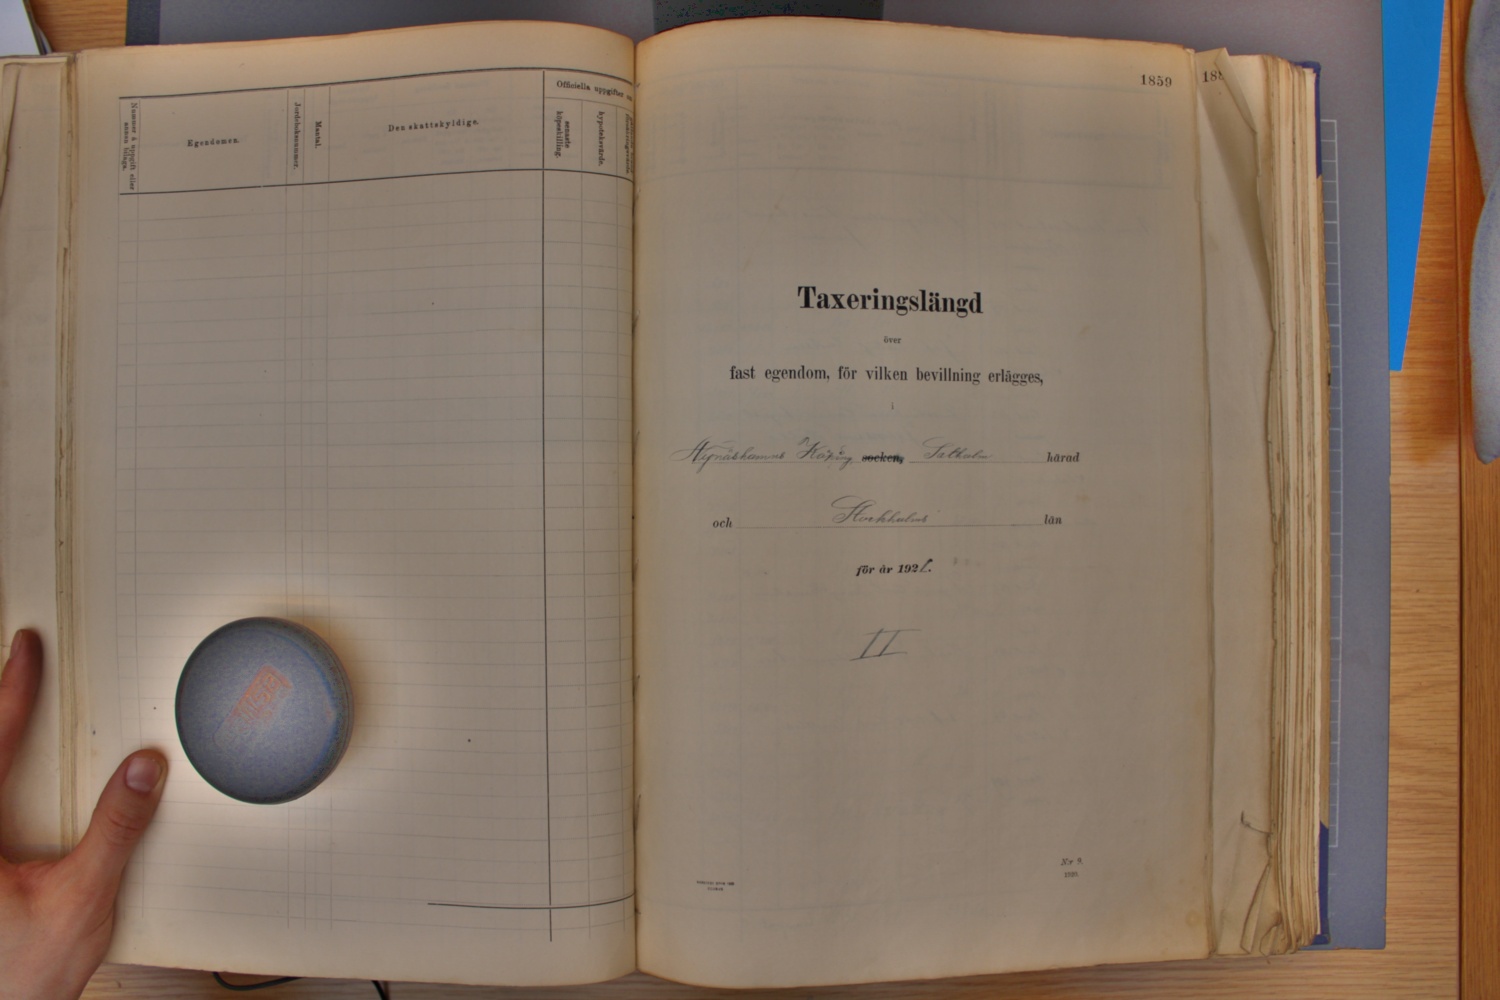 Nummer å uppgift eller annan bilaga.
Egendomen.
Jordeboksnummer.
Mantal.
Den skattskyldige.
Officiella uppgifter
senaste köpeskilling.
hypoteksvärde.
1859
188
Taxeringslängd
över
fast egendom, för vilken bevillning erlägges,
i
Nynäshamns Köping socken, Sotholm härad
och Stockholms län
för år 1921.
II
N:r 9.